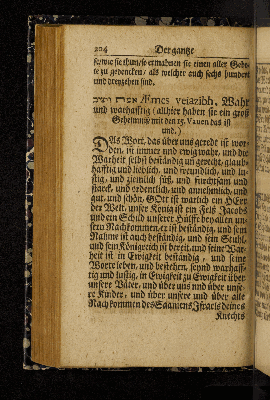 204 Der gantze
se/wie sie thun/so ermahnen sie einen aller Gebo-
te zu gedencken/ als welcher auch sechs hundert
und dreyzehen sind.
אמת ויציב Æmes vejazibh. Wahr
und warhafftig (allhier haben sie ein groß
Geheimniß mit den 15. Vauen das ist
und.)
DAs Wort, das über uns geredt ist wor-
den, ist immer und ewig wahr, und die
Warheit selbst beständig
hafftig und lieblich, und freundlich, und lu-
stig, und ziemlich süß, und furchtsam und
starck, und ordentlich, und annehmlich, und
gut, und schön, GOtt ist warlich ein HErr
der Welt, unser König ist ein Felß Jacobs
und den Schild unserer Hülffe bey allen un-
sern Nachkommen, er ist beständig, und sein
Nahme ist auch beständig, und sein Stuhl,
und sein Königreich ist bereit, und seine War-
heit ist in Ewigkeit beständig, und seine
Worte leben, und bestehen, seynd warhaff-
tig und lustig, in Ewigkeit zu Ewigkeit über
unsere Väter, und über uns und über unse-
re Kinder, und über unsere und über alle
Nachkommen des Saamens Israels deines
Knechts